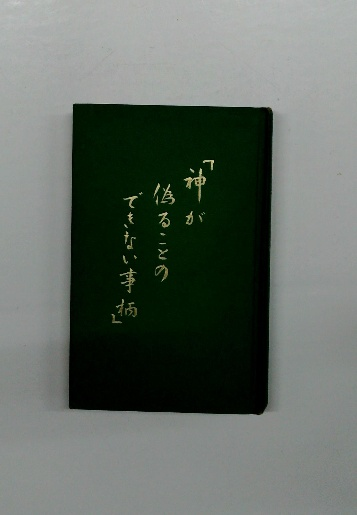 「神が
偽ることの
できない事柄」